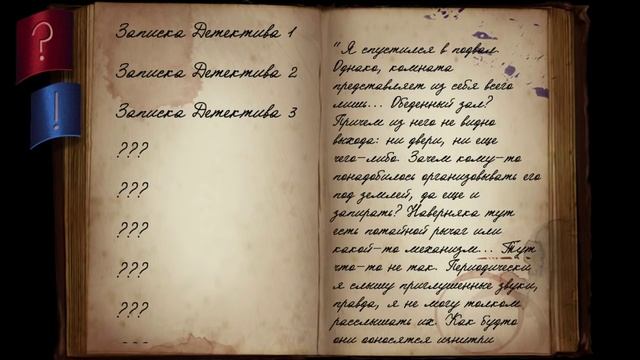 ?
!
Записка Детектива 1
Записка Детектива 2
Записка Детектива 3
???
???
???
???
???
"Я спустился в подвал.
Однако, комната
представляет из себя всего
лишь... Обеденный зал?
Причем из него не видно
выхода: ни двери, ни еще
чего-либо. Зачем кому-то
понадобилось организовывать его
под землей, да еще и
запирать? Наверняка тут
есть потайной рычаг или
какой-то механизм... Тут
что-то не так. Периодически
я слышу приглушенные звуки,
правда, я не могу толком
расслышать их. Как будто
они доносятся изнутри